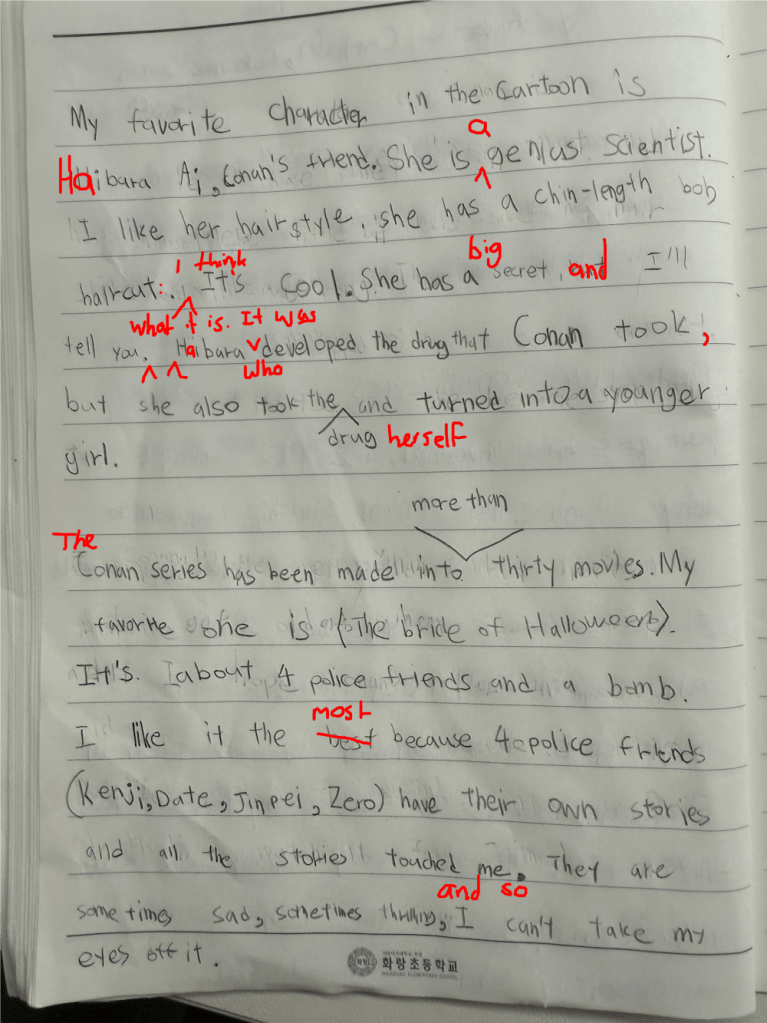 My favorite character in the Cartoon is
a
Haibara Ai, Conan's friend. She is genius scientist.
I like her hairstyle, she has a chin-length bob
I think big
haircut. It's cool. She has a secret and I'll
what it is. It was
tell you. Haibara developed the drug that Conan took,
who
but she also took the and turned into a younger
drug herself
girl.
more than
The
Conan series has been made into thirty movies. My
favorite one is (The bride of Halloween).
It's about 4 police friends and a bomb.
most
I like it the best because 4 police friends
(Kenji, Date, Jinpei, Zero) have their own stories
and all the stories touched me. They are
and so
sometimes sad, sometimes thrilling, I can't take my
eyes off it.
화랑초등학교